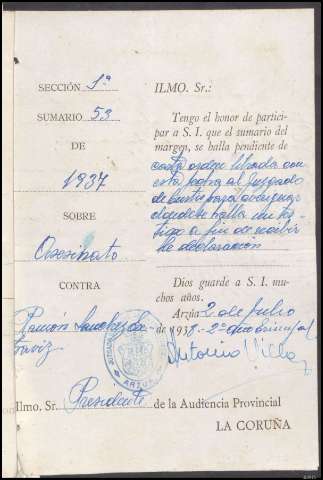 SECCIÓN 1ª
SUMARIO 53
DE
1937
SOBRE
Asesinato
CONTRA
Ramón Sanchez
ILMO. Sr.:
Tengo el honor de partici-
par a S. I. que el sumario del
margen, se halla pendiente de
carta orden librada con
esta fecha al Juzgado
de
donde se halla un tes-
tigo a fin de recibir
le declaracion
Dios guarde a S. I. mu-
chos años.
Arzúa 2 de Julio
de 1938.-2º año triunfal
Antonio Villar
ARZUA
Ilmo. Sr. Presidente de la Audiencia Provincial
LA CORUÑA